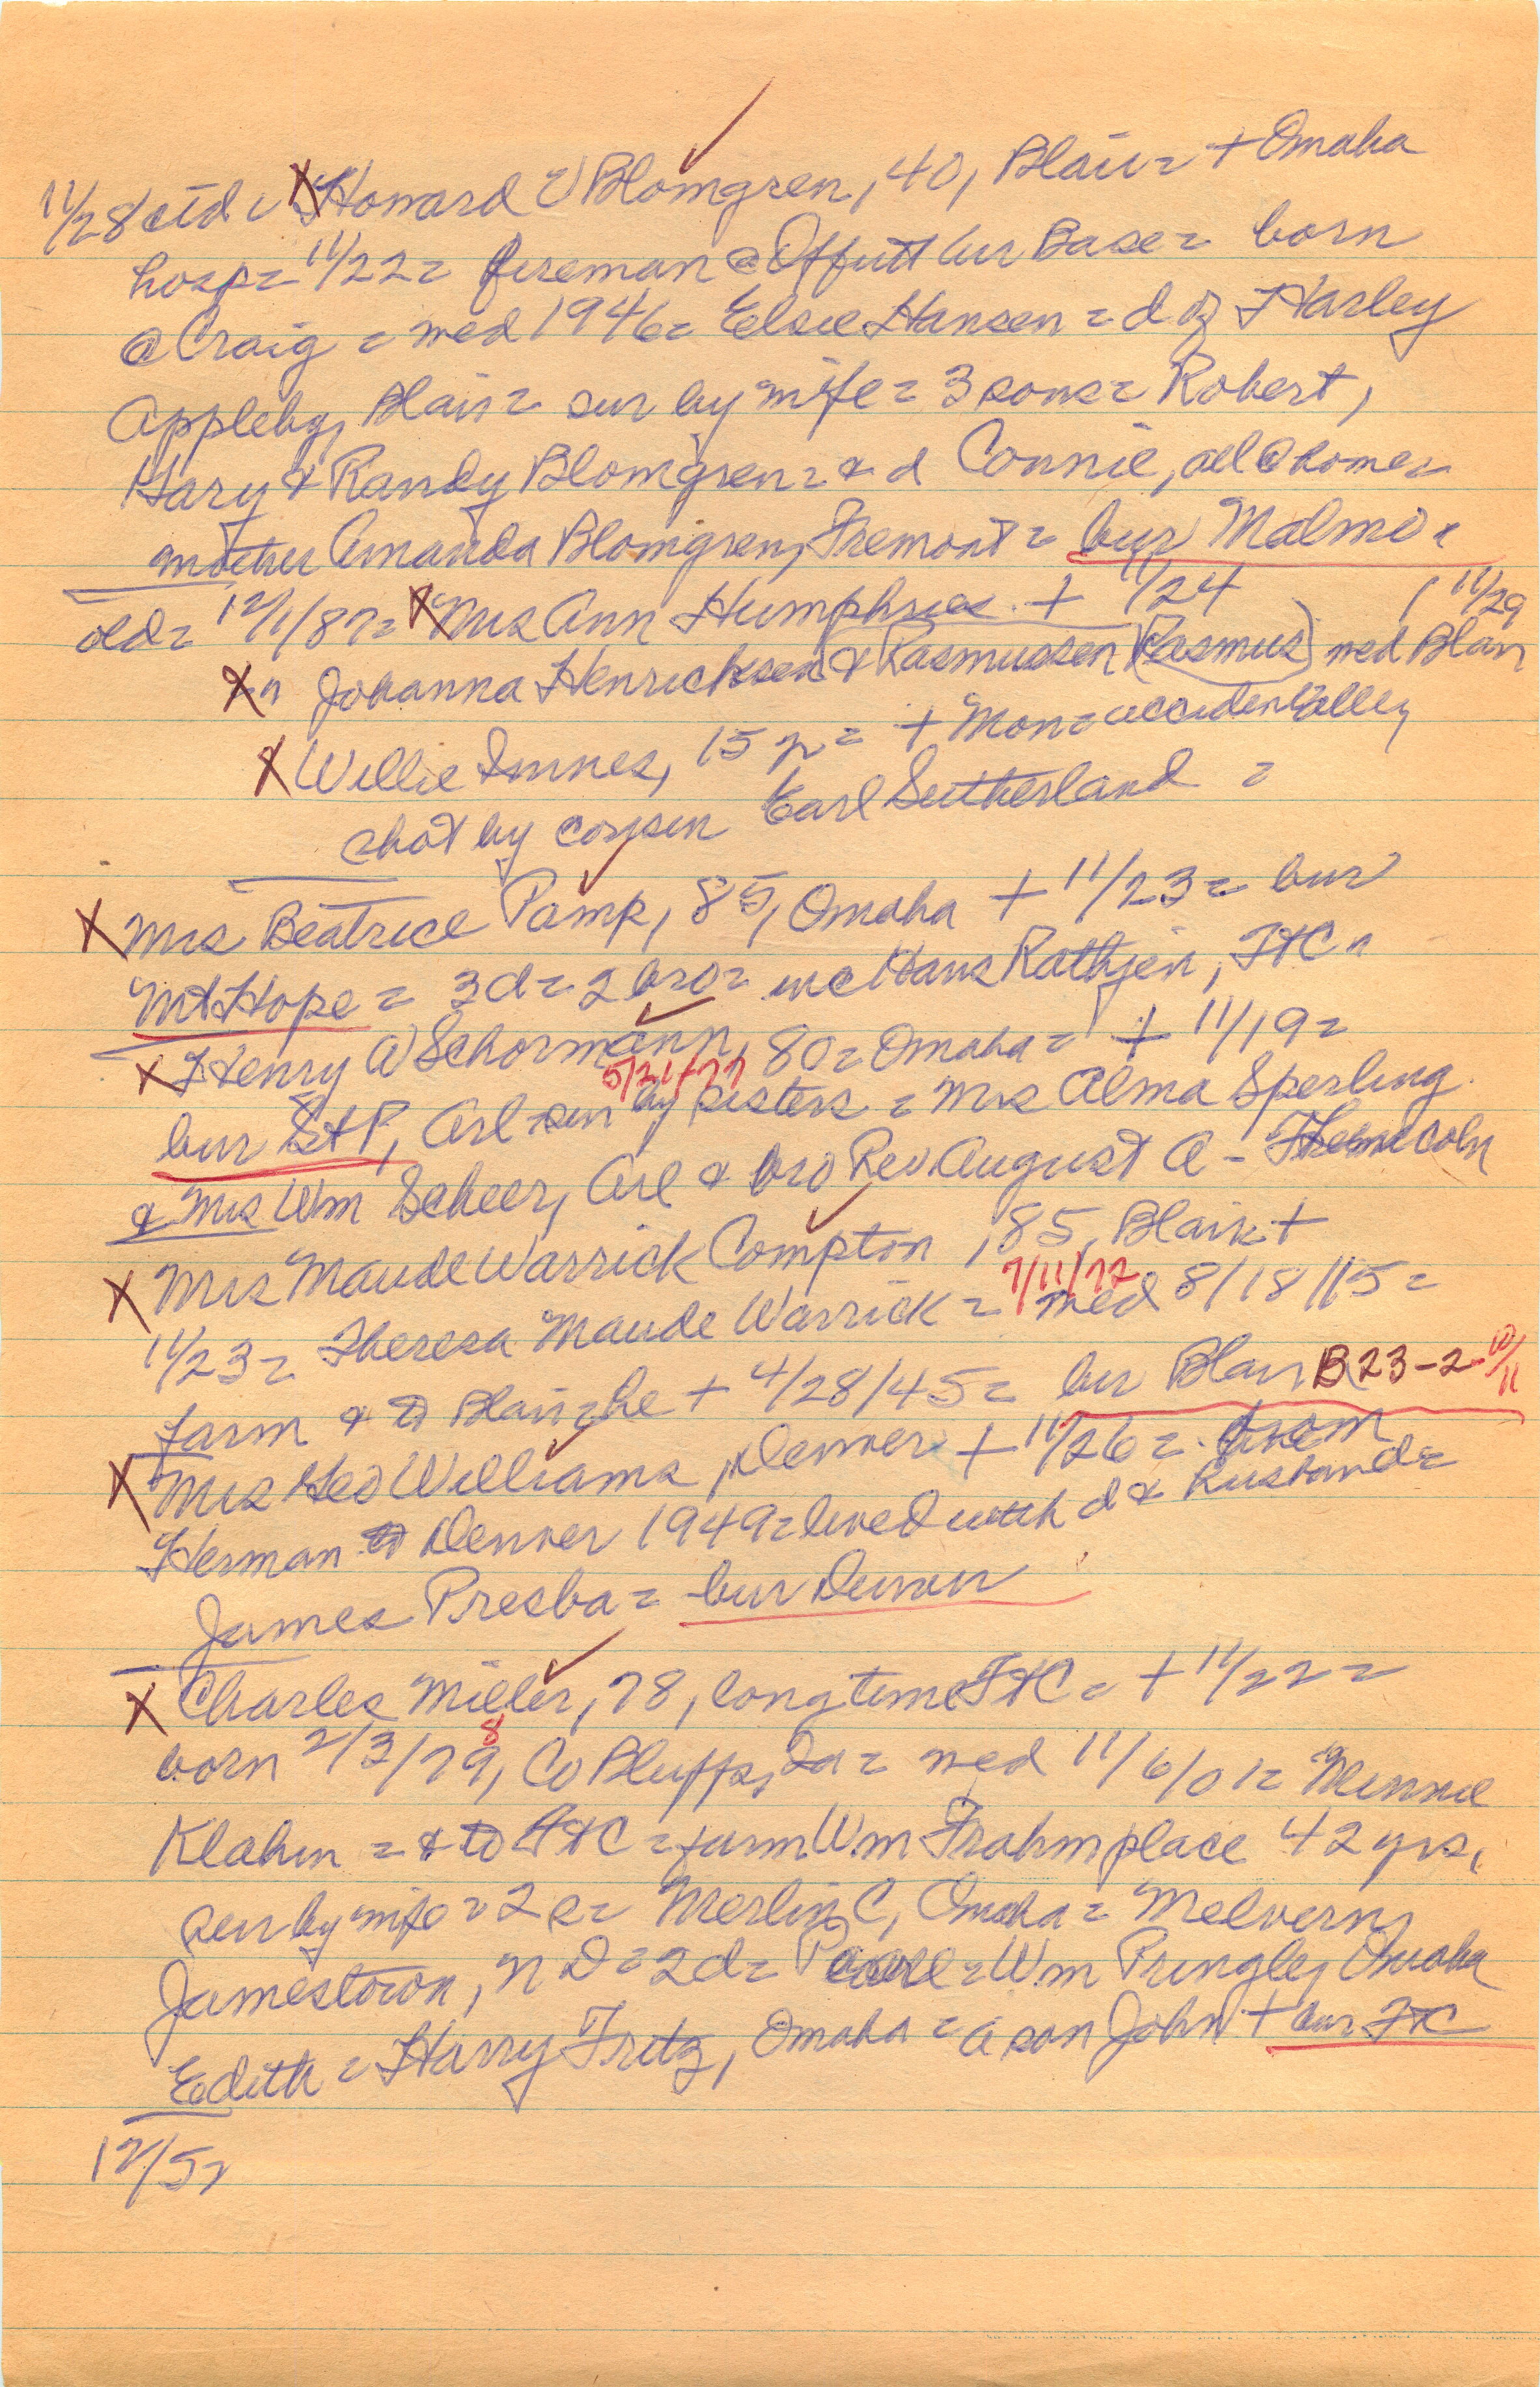 11/28 ctd = X Howard E Blomgren, 40, Blair = + Omaha
hosp = 11/22 = fireman @ Offutt Air Base = born
@ Craig = med 1946 = Elsie Hansen = d of Harley
Appleby, Blair = sur by wife = 3 sons = Robert,
Gary & Randy Blomgren = & d Connie, all @ home =
mother Amanda Blomgren, Fremont = bur Malmo =
old = 12/1/87 = X Mrs Ann Humphries + 11/24
X " Johanna Henricksen & Rasmussen (Rasmus) med Blair 11/29
X Willie Innes, 15 y = + Mon = accidentally
shot by cousin Earl Sutherland =
X Mrs Beatrice Pamp, 85, Omaha + 11/23 = bur
Mt Hope = 3 d = 2 bro = inc Hans Rathjen, FtC =
X Henry W Schormann, 80 = Omaha = + 11/19 =
5/21/77
bur St P, Arl = sur by sisters = Mrs Alma Sperling
& Mrs Wm Scheer, Arl & bro Rev August A -
X Mrs Maude Warrick Compton, 85, Blair +
7/11/72
11/23 = Theresa Maude Warrick = med 8/18/15 =
farm & to Blair = he + 4/28/45 = bur Blair B23-2- 10/11
X Mrs Geo Williams, Denver + 11/26 = from
Herman to Denver 1949 = lived with d & husband =
James Presba = bur Denver
X Charles Miller, 78, longtime FtC = + 11/22 =
8
born 2/3/79, Co Bluffs, Ia = med 11/6/01 = Minnie
Klahn = & to FtC = farm Wm Frahm place 42 yrs,
sur by wife = 2 s = Merlin C, Omaha = Melvern,
Jamestown, N D = 2 d = Pearl = Wm Pringle, Omaha
Edith = Harry Fritz, Omaha = a son John + bur FtC
12/5 =